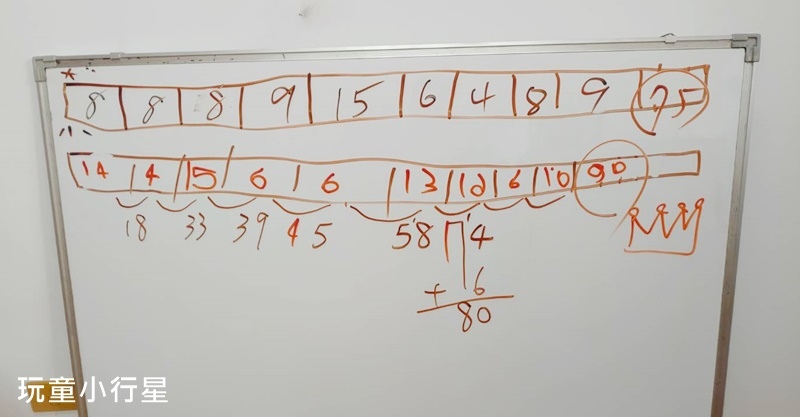 8 8 8 9 15 6 4 8 9 75
14 4 15 6 6 13 10 6 10 90
18 33 39 45 58 74
+ 6
80
玩童小行星